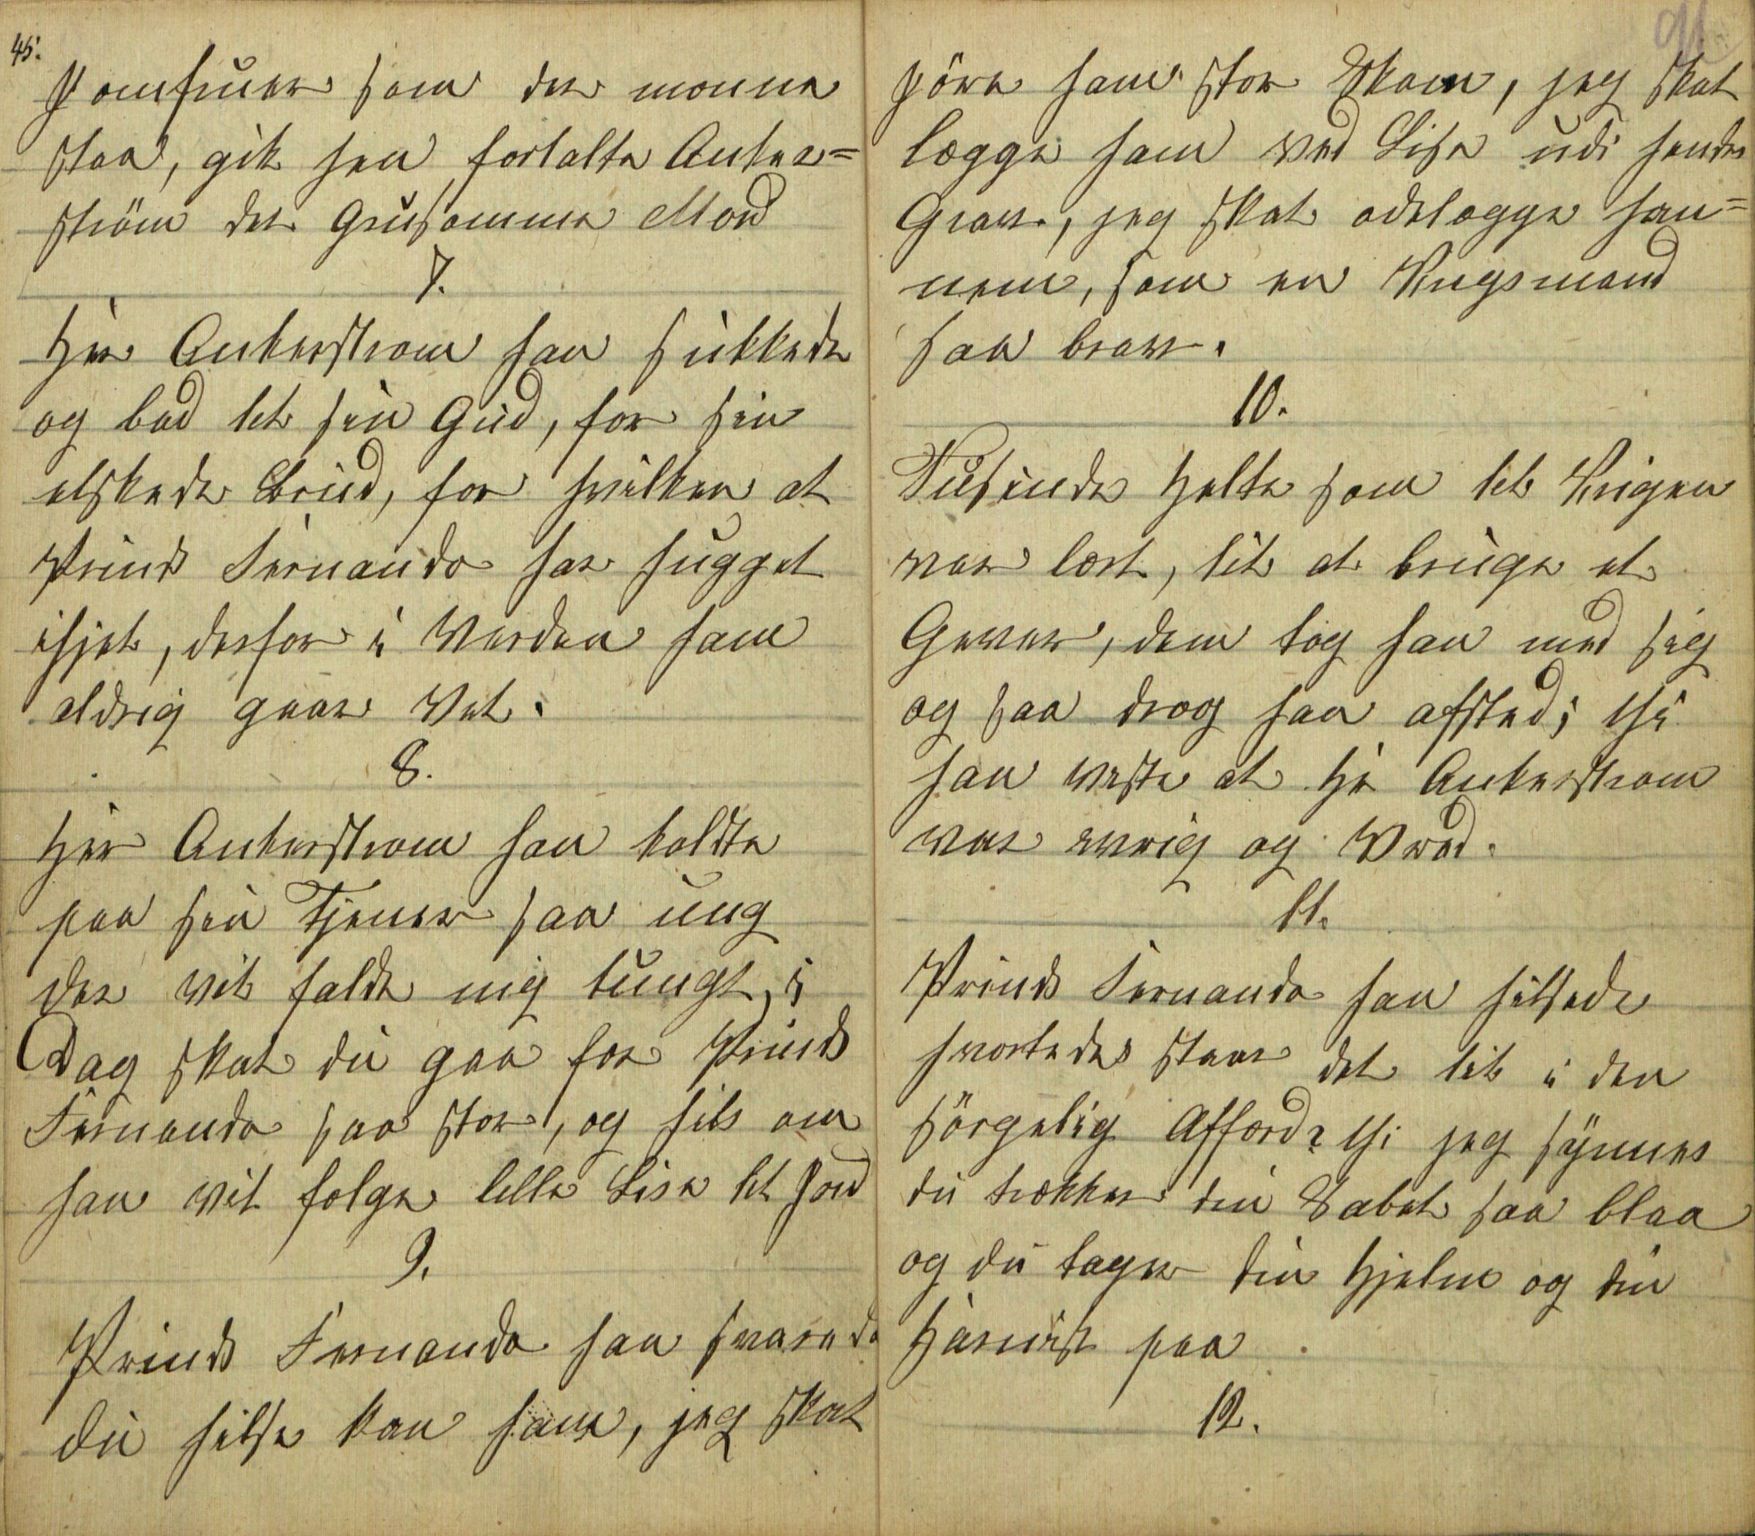 45.
Jomfruer som der monne
staa, gik hen fortalte Anker=
ström det Grusomme Mord
7.
Hr Ankerstrom han sukkede
og bad til sin Gud, for sin
elskede Brud, for hvilken at
Prinds Fernando har hugget
ihjel, derfor i Verden ham
aldrig gaar Vel.
8.
Hr Ankerstrom han kaldte
paa sin Tjener saa ung
der vil falde mig tungt, i
Dag skal du gaa for Prinds
Fernando saa stor, og hils om
han vil følge lille Lise til Jord
9.
Prinds Fernando han svarede
du hilse kan ham, jeg skal
gjöre ham stor Skam, jeg skal
lægge ham ved Lise udi hendes
Grav, jeg skal odelægge han=
nem, som en Krigsmand
saa brav.
10.
Tusinde Helte som til Krigen
var lært, til at bruge et
Gever, dem tog han med sig
og saa drog han afsted; thi
han veste at Hr Ankerstrom
var ivrig og Vred.
11.
Prinds Fernando han hilsede
hvorledes staar det til i den
sörgelig Affærd? thi jeg synnes
du trækker din Sabel saa blaa
og du tager din Hjelm og din
Harnisk paa
12.